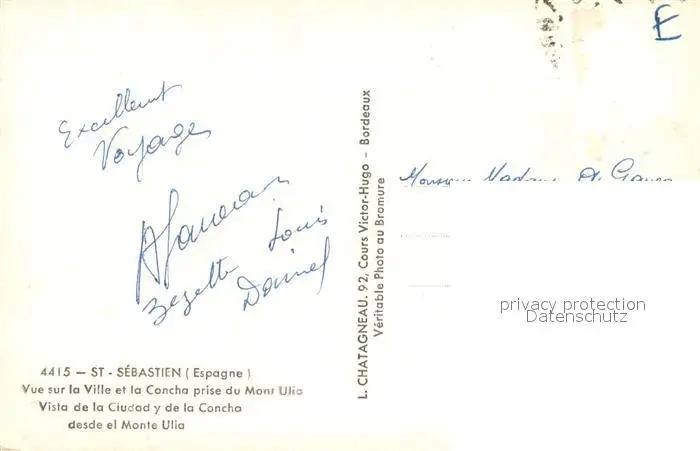 E
Excellent
Voyage
Louis
Daniel
4415 — ST - SÉBASTIEN ( Espagne )
Vue sur la Ville et la Concha prise du Mont Ulia
Vista de la Ciudad y de la Concha
desde el Monte Ulia
L. CHATAGNEAU. 92, Cours Victor-Hugo — Bordeaux
Véritable Photo au Bromure
Monsieur Madame
privacy protection
Datenschutz